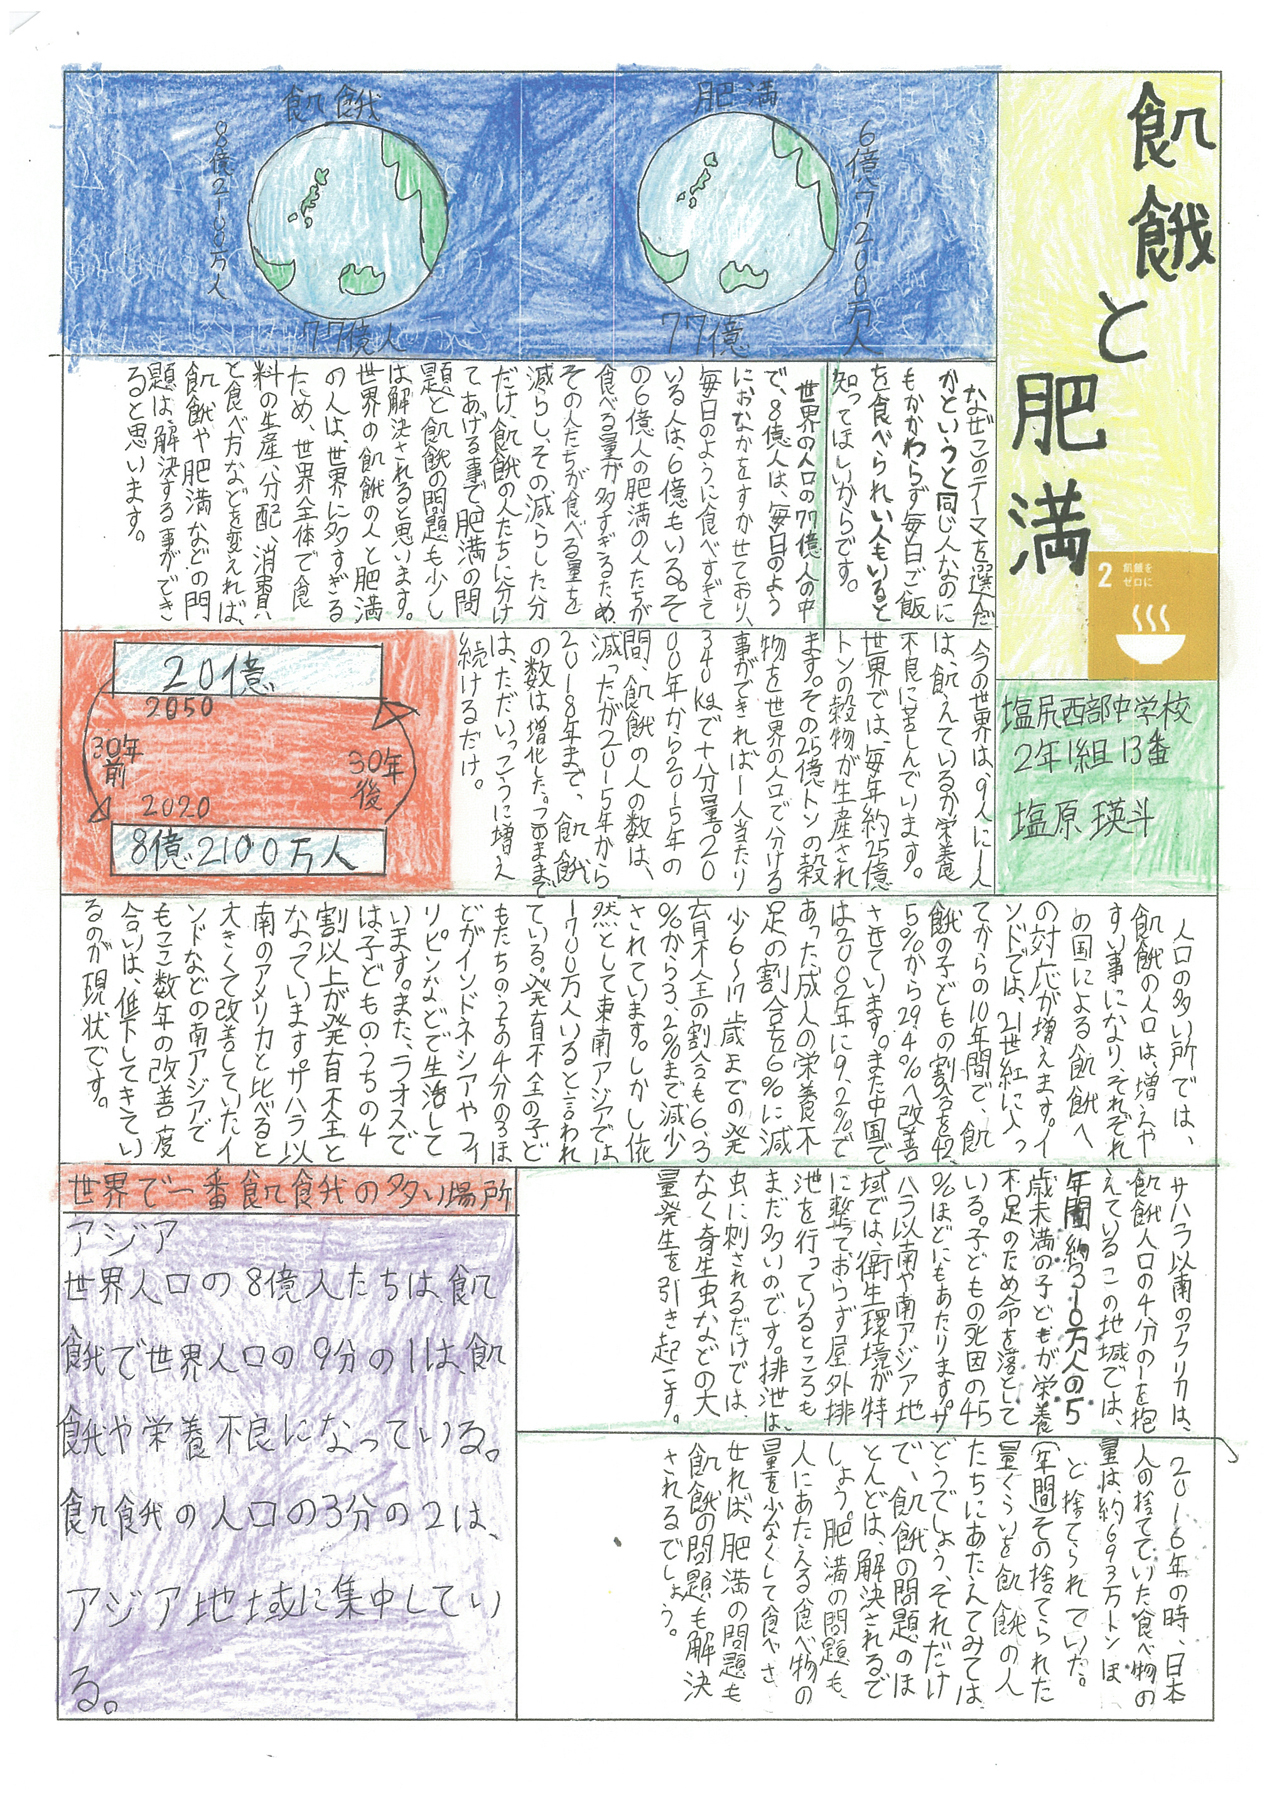 飢餓と肥満
2 飢餓を
ゼロに
塩尻西部中学校
2年1組13番
塩原瑛斗
飢餓
8億2100万人
77億人
肥満
6億7200万人
77億
なぜこのテーマを選んだ
かというと同じ人なのに
もかかわらず毎日ご飯
を食べられい人もいると
知ってほしいからです。
世界の人口の77億人の中
で8億人は、毎日のよう
におなかをすかせており、
毎日のように食べすぎて
いる人は、6億もいる。そ
の6億人の肥満の人たちが
食べる量が多すぎるため、
その人たちが食べる量を
減らし、その減らした分
だけ、飢餓の人たちに分け
てあげる事で、肥満の問
題と飢餓の問題も少し
は解決されると思います。
世界の飢餓の人と肥満
の人は、世界に多すぎる
ため、世界全体で食
料の生産、分配、消費、
と食べ方などを変えれば、
飢餓や肥満などの問
題は、解決する事ができ
ると思います。
今の世界は、9人に1人
は、飢えているか栄養
不良に苦しんでいます。
世界では、毎年約25億
トンの穀物が生産され
ます。その25億トンの穀
物を世界の人口で分ける
事ができれば一人当たり
340kgで十分量。20
00年から2015年の
間、飢餓の人の数は、
減ったが2015年から
2018年まで、飢餓
の数は増化した。このままで
は、ただいっこうに増え
続けるだけ。
20億
2050
30年
前
30年
後
2020
8億2100万人
人口の多い所では、
飢餓の人口は、増えや
すい事になり、それぞれ
の国による飢餓へ
の対応が増えます。イ
ンドでは、21世紅に入っ
てからの10年間で、飢
餓の子どもの割合を42.
5%から29.4%へ改善
させています。また中国で
は2002年に9.2%で
あった成人の栄養不
足の割合を6%に減
少6~17歳までの発
育不全の割合も6.3
%から3.2%まで減少
されています。しかし依
然として東南アジアでは
1700万人いると言われ
ている。発育不全の子ど
もたちのうちの4分の3ほ
どがインドネシアやフィ
リピンなどで生活して
います。また、ラオスで
は子どものうちの4
割以上が発育不全と
なっています。サハラ以
南のアメリカと比べると
大きくて改善していたイ
ンドなどの南アジアで
もここ数年の改善度
合いは、低下してきてい
るのが現状です。
サハラ以南のアフリカは、
飢餓人口の4分の一を抱
えているこの地域では、
年間約310万人の5
歳未満の子どもが栄養
不足のため命を落として
いる。子どもの死因の45
%ほどにもあたります。サ
ハラ以南や南アジア地
域では、衛生環境が特
に整っておらず屋外排
泄を行っているところも
まだ多いのです。排泄は、
虫に刺されるだけでは、
なく寄生虫などの大
量発生を引き起こす。
世界で一番飢餓の多い場所
アジア
世界人口の8億人たちは、飢
餓で世界人口の9分の1は、飢
餓や栄養不良になっている。
飢餓の人口の3分の2は、
アジア地域に集中してい
る。
2016年の時、日本
人の捨てていた食べ物の
量は、約693万トンほ
ど捨てられていた。
(年間)その捨てられた
量くらいを飢餓の人
たちにあたえてみては
どうでしょう、それだけ
で、飢餓の問題のほ
とんどは、解決されるで
しょう。肥満の問題も、
人にあたえる食べ物の
量を少なくして食べさ
せれば、肥満の問題も
飢餓の問題も解決
されるでしょう。